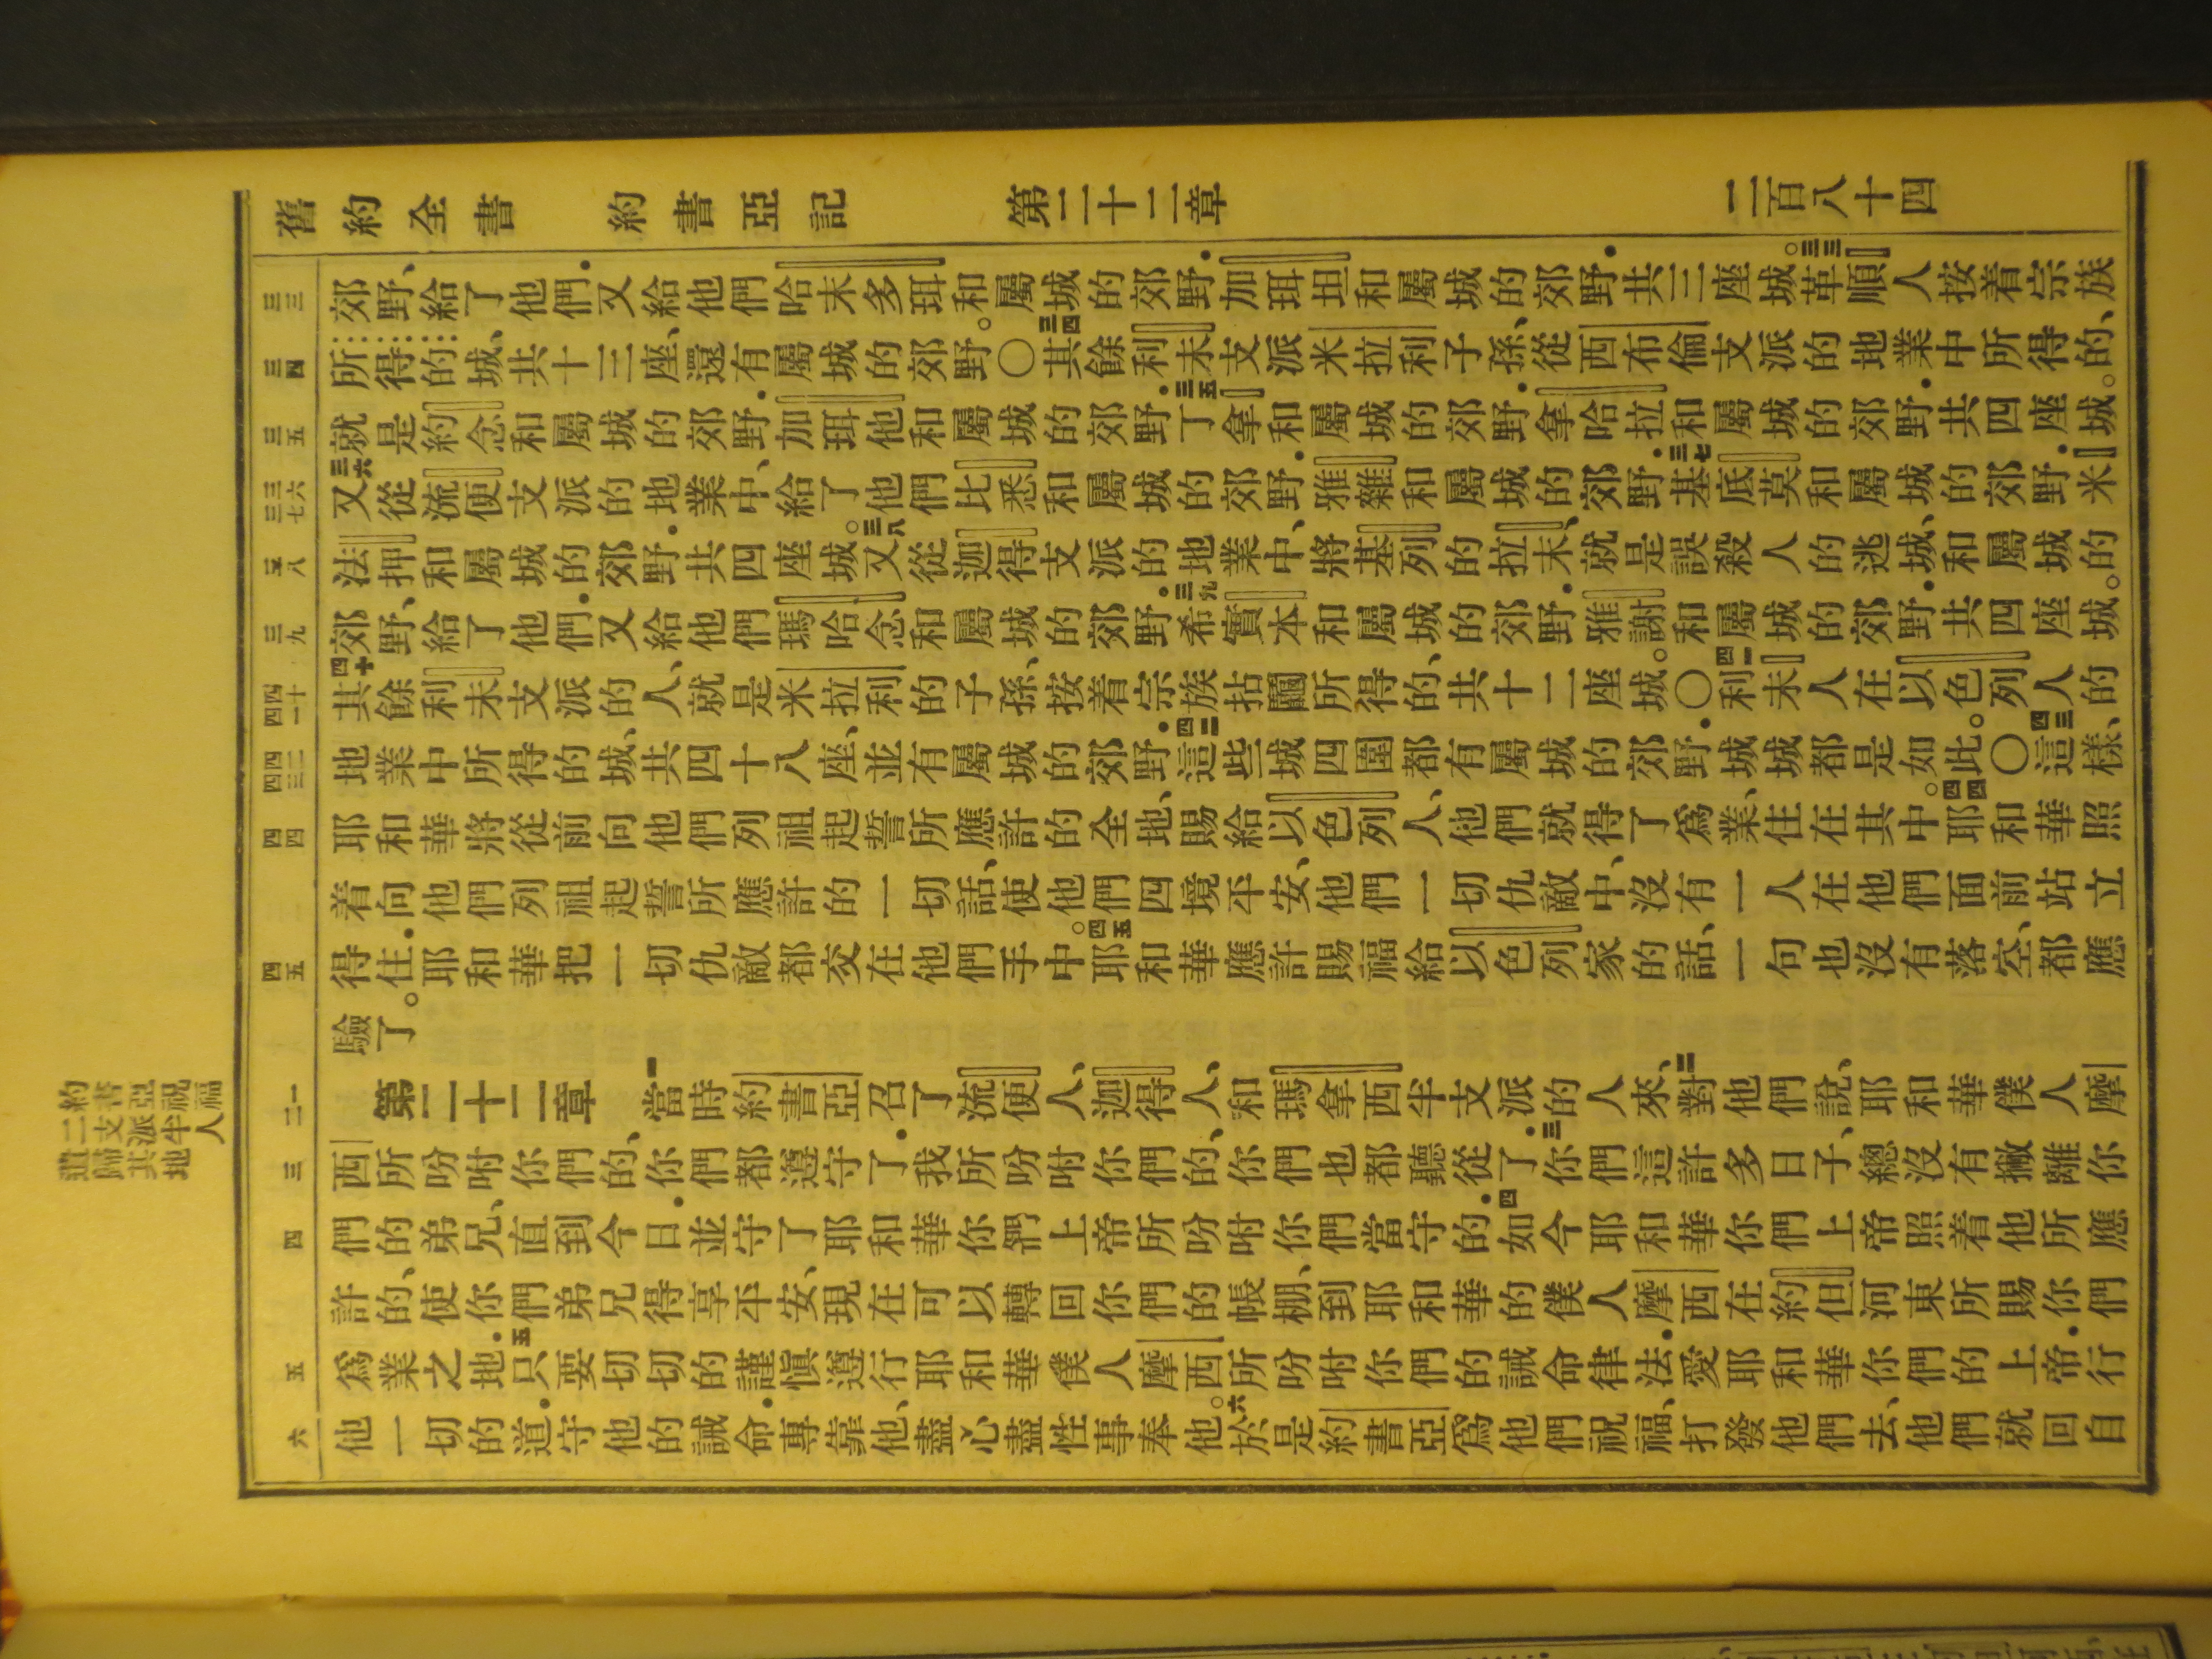 舊約全書 約書亞記 第二十二章 二百八十四
三三
郊野、給了他們．又給他們哈末多珥和屬城的郊野．加珥坦和屬城的郊野．共三座城。三三革順人按着宗族
三四
所得的城、共十三座、還有屬城的郊野。〇三四其餘利未支派米拉利子孫、從西布倫支派的地業中所得的、
三五
就是約念和屬城的郊野．加珥他和屬城的郊野．三五丁拿和屬城的郊野．拿哈拉和屬城的郊野．共四座城。
三六 三七
三六又從流便支派的地業中、給了他們比悉和屬城的郊野．雅雜和屬城的郊野．三七基底莫和屬城的郊野．米
三八
法押和屬城的郊野．共四座城。三八又從迦得支派的地業中、將基列的拉末、就是誤殺人的逃城、和屬城的
三九
郊野、給了他們．又給他們瑪哈念和屬城的郊野．三九希實本和屬城的郊野．雅謝和屬城的郊野．共四座城。
四十 四一
四十其餘利未支派的人、就是米拉利的子孫、按着宗族拈鬮所得的、共十二座城。〇四一利未人在以色列人的
四二 四三
地業中所得的城、共四十八座、並有屬城的郊野．四二這些城四圍都有屬城的郊野．城城都是如此。〇四三這樣、
四四
耶和華將從前向他們列祖起誓所應許的全地、賜給以色列人、他們就得了爲業、住在其中。四四耶和華照
着向他們列祖起誓所應許的一切話、使他們四境平安、他們一切仇敵中、沒有一人在他們面前站立
四五
得住．耶和華把一切仇敵都交在他們手中。四五耶和華應許賜福給以色列家的話、一句也沒有落空、都應
驗了。
約書亞祝福
二支派半人
遣歸其地
一 二
第二十二章 一當時約書亞召了流便人、迦得人、和瑪拿西半支派的人來、二對他們說、耶和華僕人摩
三
西所吩咐你們的、你們都遵守了．我所吩咐你們的、你們也都聽從了．三你們這許多日子、總沒有撇離你
四
們的弟兄、直到今日．並守了耶和華你們上帝所吩咐你們當守的．四如今耶和華你們上帝照着他所應
許的、使你們弟兄得享平安、現在可以轉回你們的帳棚、到耶和華的僕人摩西在約但河東所賜你們
五
爲業之地．五只要切切的謹愼遵行耶和華僕人摩西所吩咐你們的誡命律法．愛耶和華你們的上帝．行
六
他一切的道．守他的誡命．專靠他、盡心盡性事奉他。六於是約書亞爲他們祝福、打發他們去、他們就回自